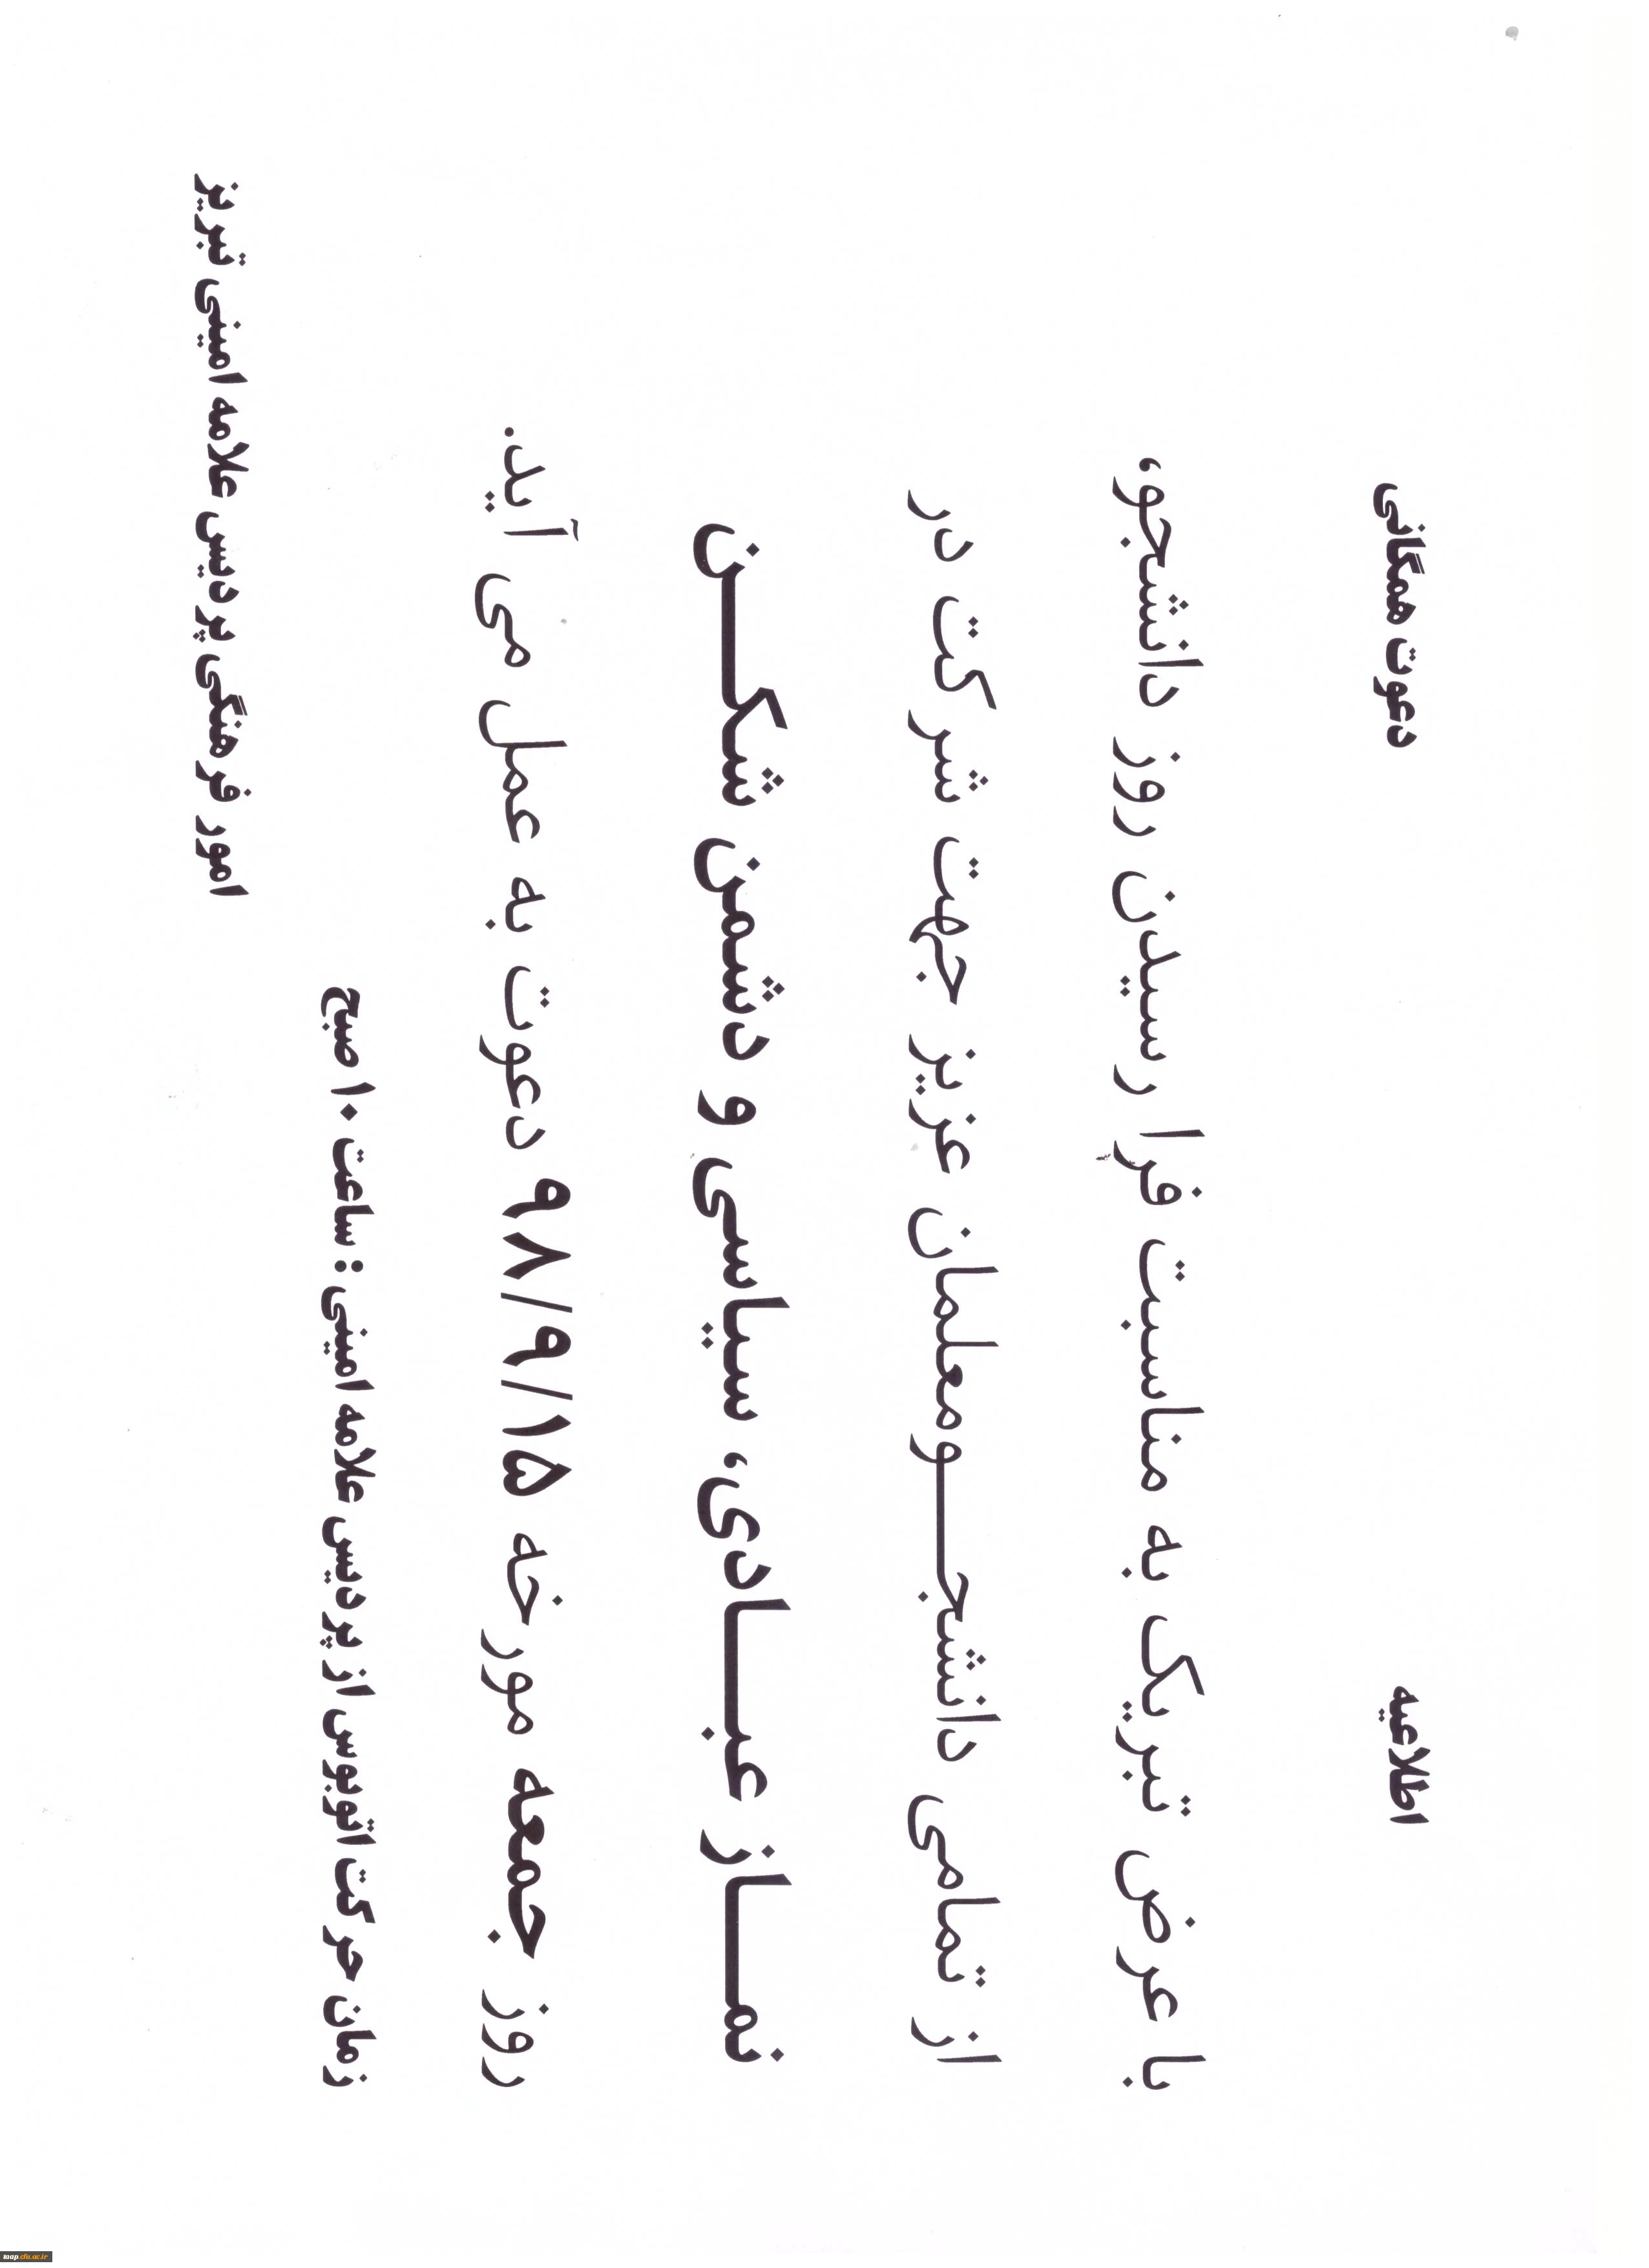 اطلاعیه دعوت همگانی
با عرض تبریک به مناسبت فرا رسیدن روز دانشجو،
از تمامی دانشجـــومعلمان عزیز جهت شرکت در
نمـــاز عبـــادی، سیاسی و دشمن شکـــن
روز جمعه مورخه ۹۸/۹/۱۵ دعوت به عمل می آید.
زمان حرکت اتوبوس از پردیس علامه امینی : ساعت ۱۰ صبح
امور فرهنگی پردیس علامه امینی تبریز
taap.cfu.ac.ir